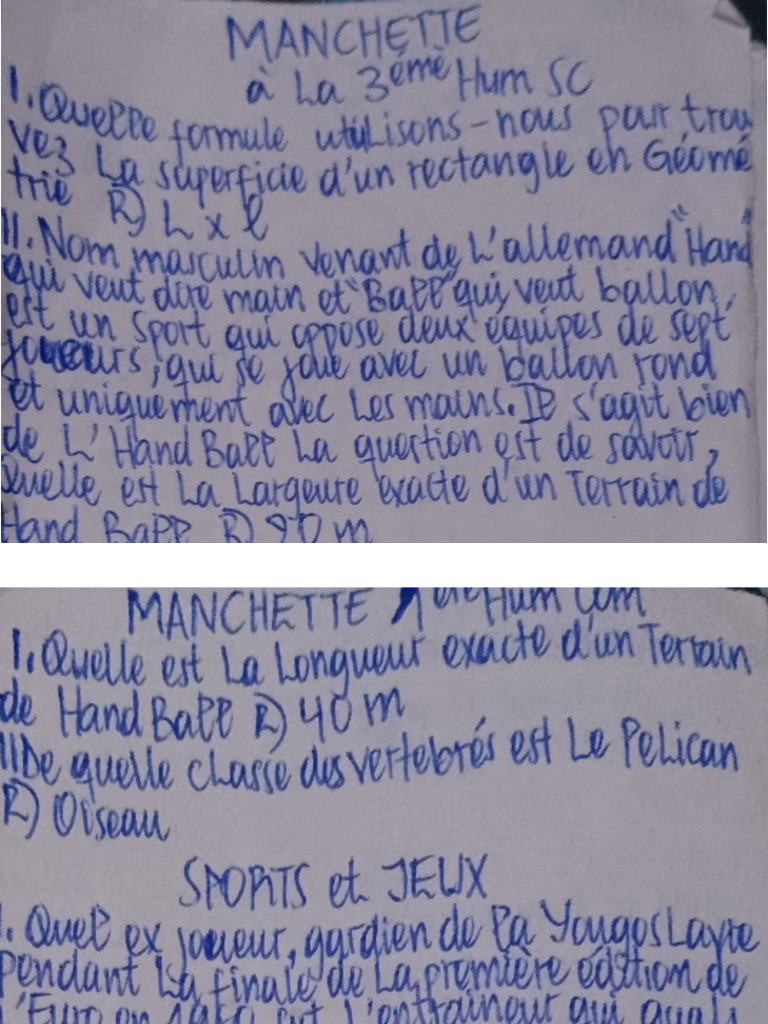 MANCHETTE
à La 3ème Hum SC
I. Quelle formule utilisons-nous pour trou
vez La superficie d'un rectangle en Géomé
trie R) L x l
II. Nom masculin venant de L'allemand "Hand"
qui veut dire main et "Ball" qui veut ballon,
est un sport qui oppose deux équipes de sept
joueurs, qui se joue avec un ballon rond
et uniquement avec Les mains. Il s'agit bien
de L'Hand Ball La question est de savoir,
Quelle est La Largeure exacte d'un Terrain de
Hand Ball R) 20 m
MANCHETTE 1ère Hum Com
I. Quelle est La Longueur exacte d'un Terrain
de Hand Ball R) 40 m
II De quelle classe des vertebrés est Le Pelican
R) Oiseau
SPORTS et JEUX
I. Quel ex joueur, gardien de la Yougoslavie
pendant La finale de La première édition de
L'Euro en 1960 fut L'entraineur qui quali